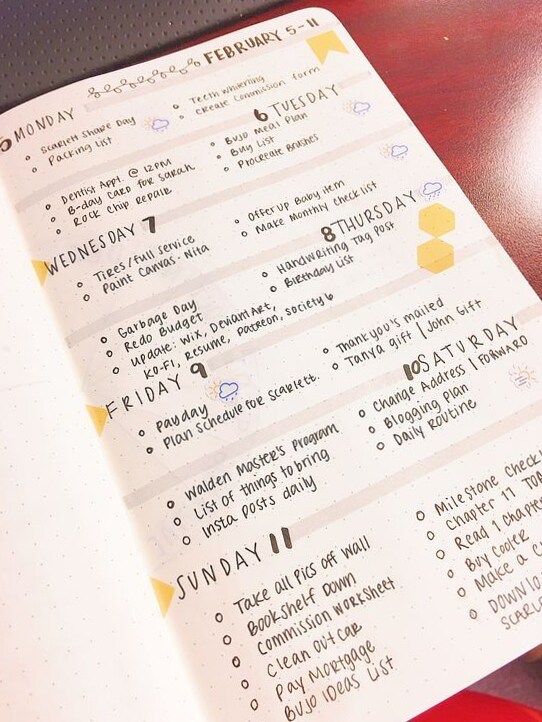 FEBRUARY 5-11
5 MONDAY
Scarlett Share Day
Packing List
Teeth whitening
Create Commission form
6 TUESDAY
Dentist Appt. @ 12PM
B-day Card for Sarah
Rock Chip Repair
Bujo Meal Plan
Buy List
Procreate Brushes
WEDNESDAY 7
Tires/full service
Paint Canvas - Nita
Offer Up Baby item
Make Monthly check list
8 THURSDAY
Garbage Day
Redo Budget
Update: Wix, Deviant Art,
Ko-Fi, Resume, Patreon, Society 6
Handwriting Tag Post
Birthday List
FRIDAY 9
Payday
Plan Schedule for Scarlett.
Thank you's mailed
Tanya gift | John Gift
10 SATURDAY
Walden Master's Program
List of things to bring
Insta Posts daily
Change Address | Forward
Blogging Plan
Daily Routine
SUNDAY 11
Take all Pics off Wall
Bookshelf Down
Commission Worksheet
Clean out car
Pay Mortgage
Bujo Ideas List
Milestone check
Chapter 11
Read 1 chapte
Buy cooler
Make a C
Downlo
Scarle